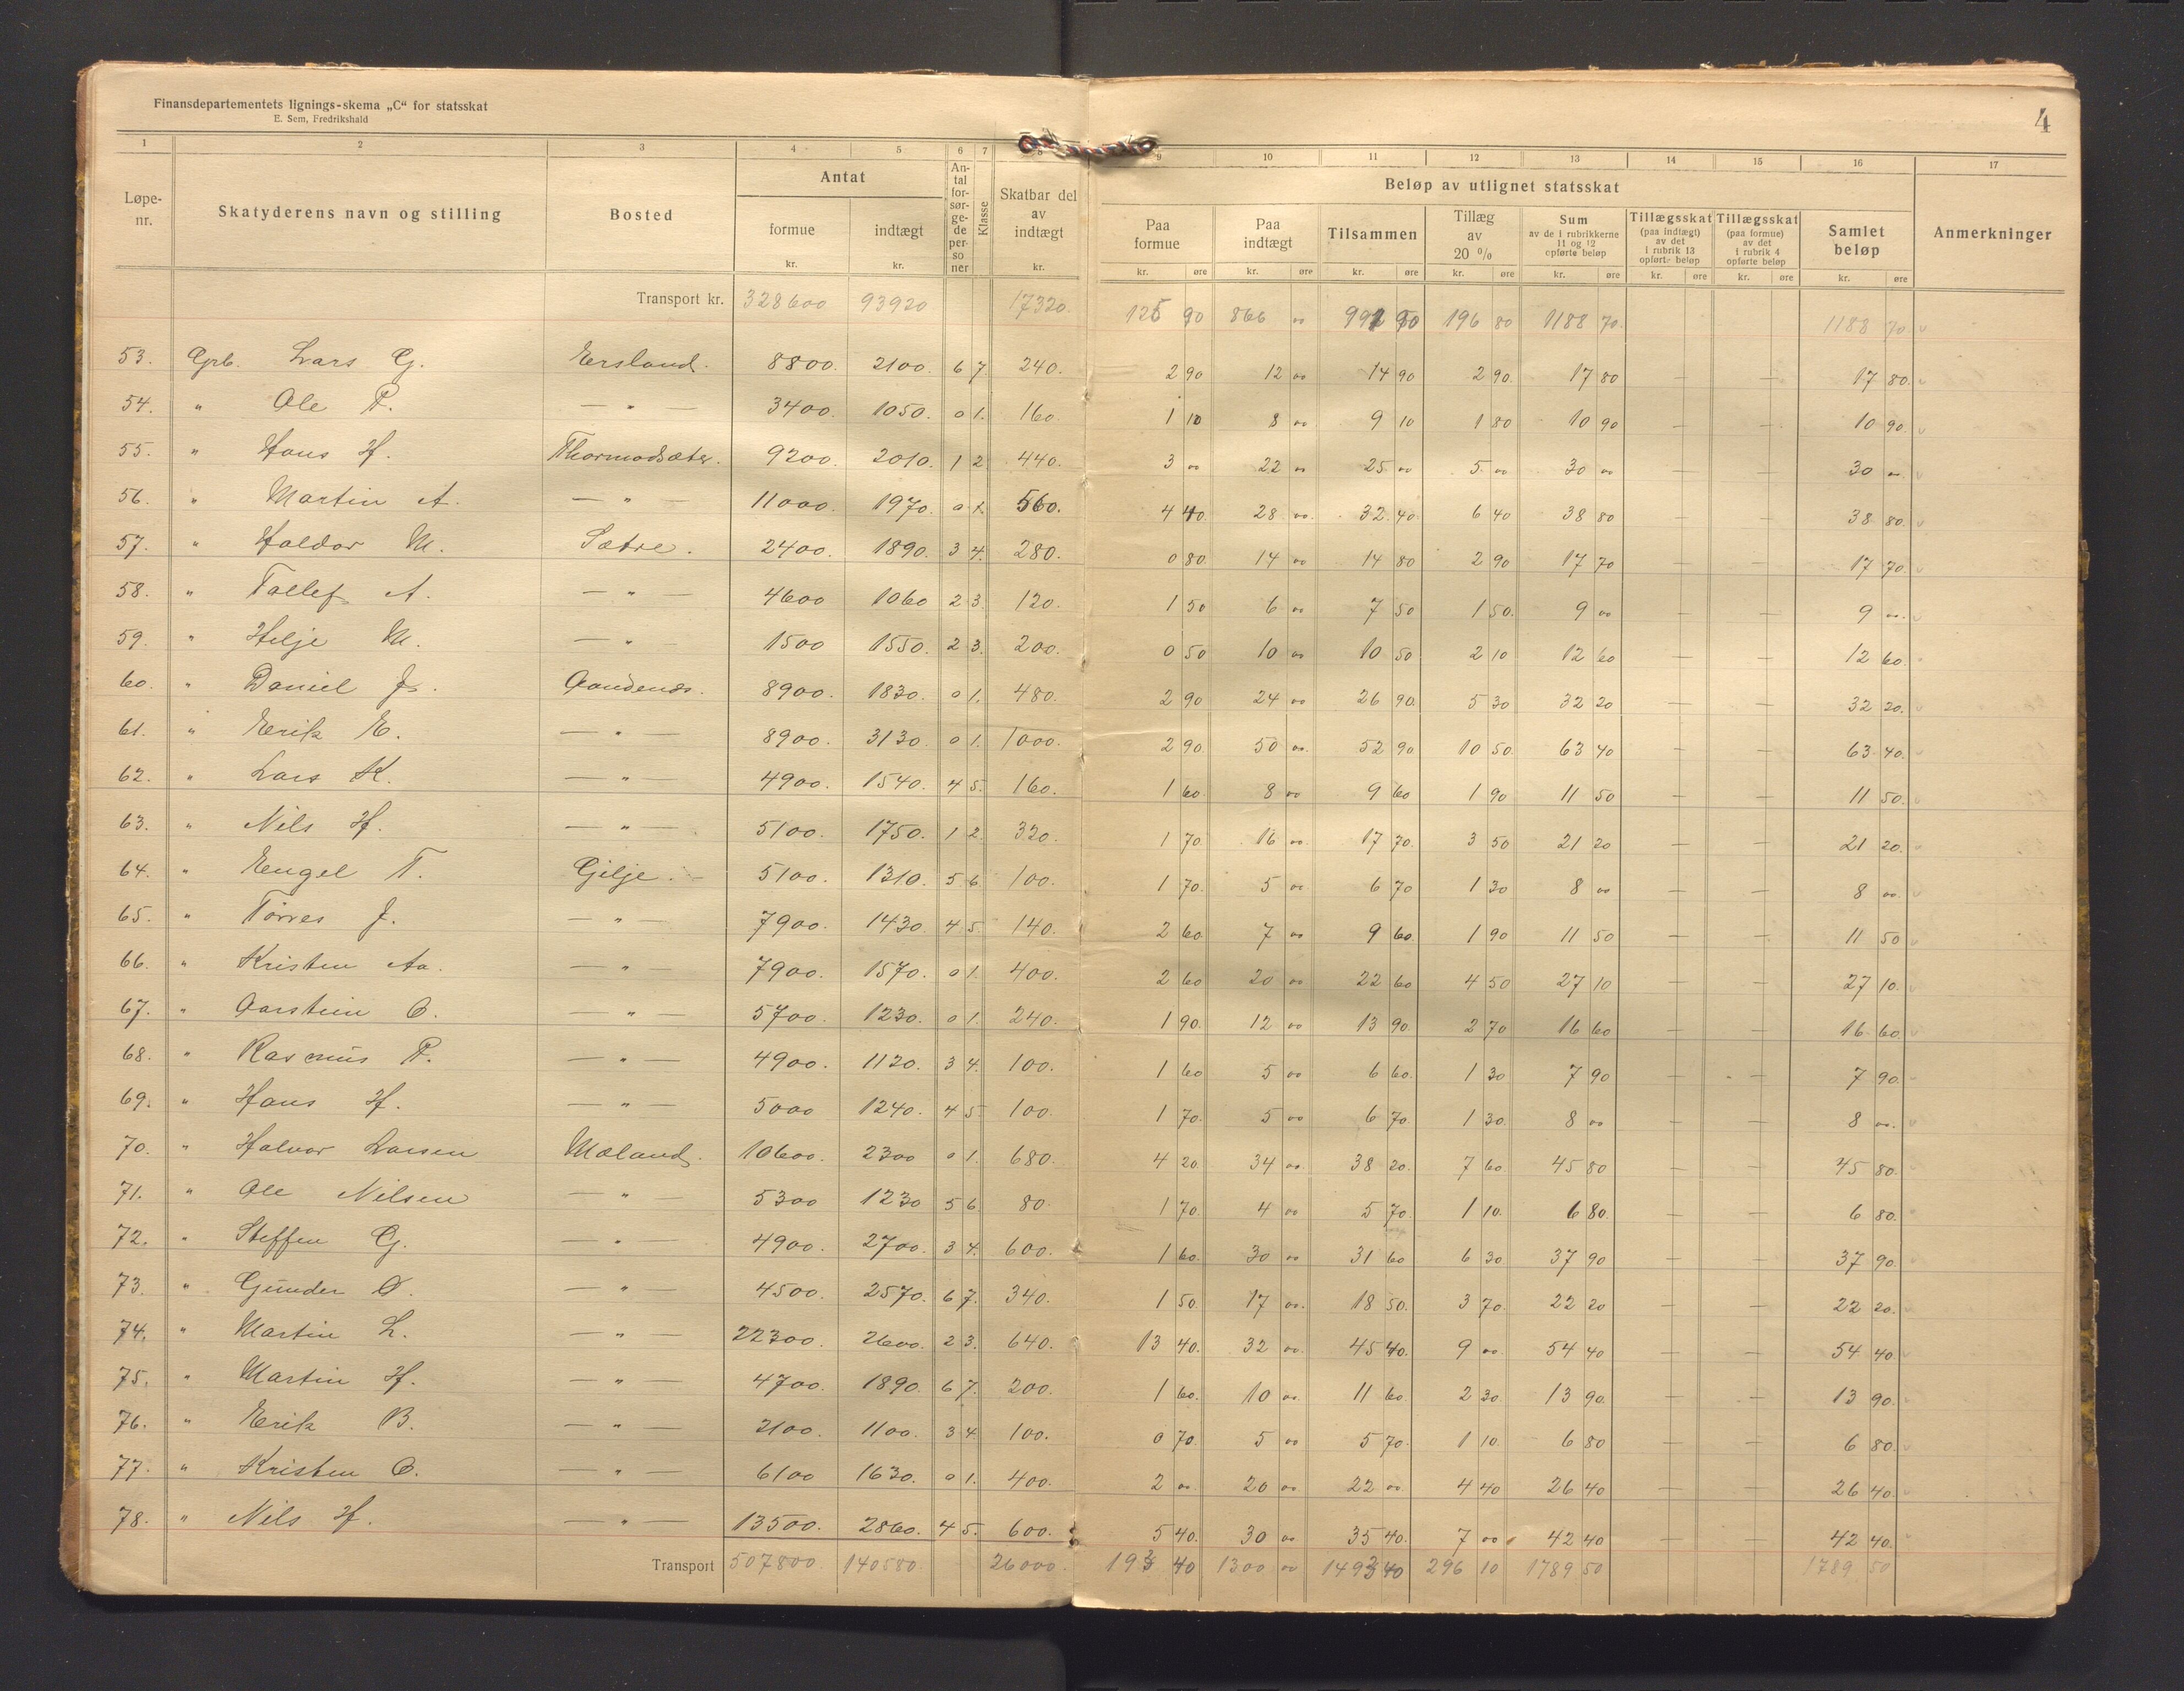 Finansdepartementets lignings-skema „C“ for statsskat
E. Sem, Fredrikshald
4
1 2 3 4 5 6 7 8 9 10 11 12 13 14 15 16 17
Løpe-nr. Skatyderens navn og stilling Bosted Antat formue kr. indtægt kr. Antal forsørgede personer Klasse Skatbar del av indtægt kr. Beløp av utlignet statsskat Paa formue kr. øre Paa indtægt kr. øre Tilsammen kr. øre Tillæg av 20 % kr. øre Sum av de i rubrikkerne 11 og 12 opførte beløp kr. øre Tillægsskat (paa indtægt) av det i rubrik 13 opførte beløp kr. øre Tillægsskat (paa formue) av det i rubrik 4 opførte beløp kr. øre Samlet beløp kr. øre Anmerkninger
Transport kr. 328600 93920 17320. 125 90 866 00 991 90 196 80 1188 70. 1188 70
53. Grb. Lars G. Ersland. 8800. 2100. 6 7. 240. 2 90 12 00 14 90 2 90. 17 80 — — 17 80.
54. " Ole P. — " — 3400. 1050. 0 1. 160. 1 10 8 00 9 10 1 80 10 90 — — 10 90.
55. " Hans H. Thormodsæter. 9200. 2010. 1 2 440. 3 00 22 00 25 00 5 00 30 00 — — 30 00.
56. " Martin A. — " — 11000. 1970. 0 1. 560. 4 40. 28 00. 32. 40 6 40 38 80 — — 38 80.
57. " Haldor M. Sætre. 2400. 1890. 3 4. 280. 0 80. 14 00 14 80 2 90 17 70 — — 17 70.
58. " Tollef A. — " — 4600 1060 2 3. 120. 1 50 6 00 7 50 1 50. 9 00 — — 9 00.
59. " Helje M. — " — 1500 1550. 2 3. 200. 0 50 10 00 10 50 2 10 12 60 — — 12 60.
60. " Daniel J. Aandenæs. 8900. 1830. 0 1. 480. 2 90 24 00 26 90. 5 30 32 20 — — 32 20.
61. " Erik E. — " — 8900. 3130. 0 1. 1000. 2 90. 50 00. 52 90 10 50. 63 40 — — 63 40.
62. " Lars K. — " — 4900. 1540. 4 5. 160. 1 60. 8 00 9 60 1 90 11 50 — — 11 50.
63. " Nils H. — " — 5100. 1750. 1 2. 320. 1 70. 16 00. 17 70. 3 50 21 20 — — 21 20.
64. " Engel T. Gilje. 5100. 1310. 5 6. 100. 1 70. 5 00 6 70 1 30 8 00 — — 8 00.
65. " Torres J. — " — 7900. 1430. 4 5. 140. 2 60. 7 00 9 60. 1 90 11 50 — — 11 50
66. " Kristen Aa. — " — 7900. 1570. 0 1. 400. 2 60 20 00 22 60 4 50 27 10 — — 27 10.
67. " Aarstein O. — " — 5700. 1230. 0 1. 240. 1 90. 12 00 13 90. 2 70 16 60 — — 16 60.
68. " Rasmus P. — " — 4900. 1120. 3 4. 100. 1 60 5 00 6 60. 1 30 7 90 — — 7 90.
69. " Hans H. — " — 5000 1240. 4 5. 100. 1 70. 5 00 6 70. 1 30. 8 00 — — 8 00.
70. " Halvor Larsen Mæland. 10600. 2300 0 1. 680. 4 20. 34 00. 38 20. 7 60. 45 80 — — 45 80.
71. " Ole Nilsen — " — 5300 1230 5 6. 80. 1 70. 4 00 5 70. 1 10. 6 80. — — 6 80.
72. " Steffen G. — " — 4900. 2700. 3 4. 600. 1 60. 30 00 31 60 6 30 37 90 — — 37 90.
73. " Gunder O. — " — 4500. 2570. 6 7. 340. 1 50. 17 00. 18 50. 3 70. 22 20 — — 22 20.
74. " Martin L. — " — 22300. 2600. 2 3. 640. 13 40. 32 00. 45 40. 9 00. 54 40 — — 54 40.
75. " Martin H. — " — 4700. 1890. 6 7. 200. 1 60. 10 00. 11 60. 2 30. 13 90. — — 13 90.
76. " Erik B. — " — 2100. 1100. 3 4 100. 0 70. 5 00 5 70. 1 10. 6 80 — — 6 80.
77. " Kristen O. — " — 6100 1630. 0 1. 400. 2 00. 20 00 22 00. 4 40 26 40 — — 26 40.
78. " Nils H. — " — 13500. 2860. 4 5. 600. 5 40. 30 00 35 40. 7 00 42 40 — — 42 40.
Transport 507800. 140580. 26000. 193 40 1300 00 1493 40 296 10 1789 50 1789 50